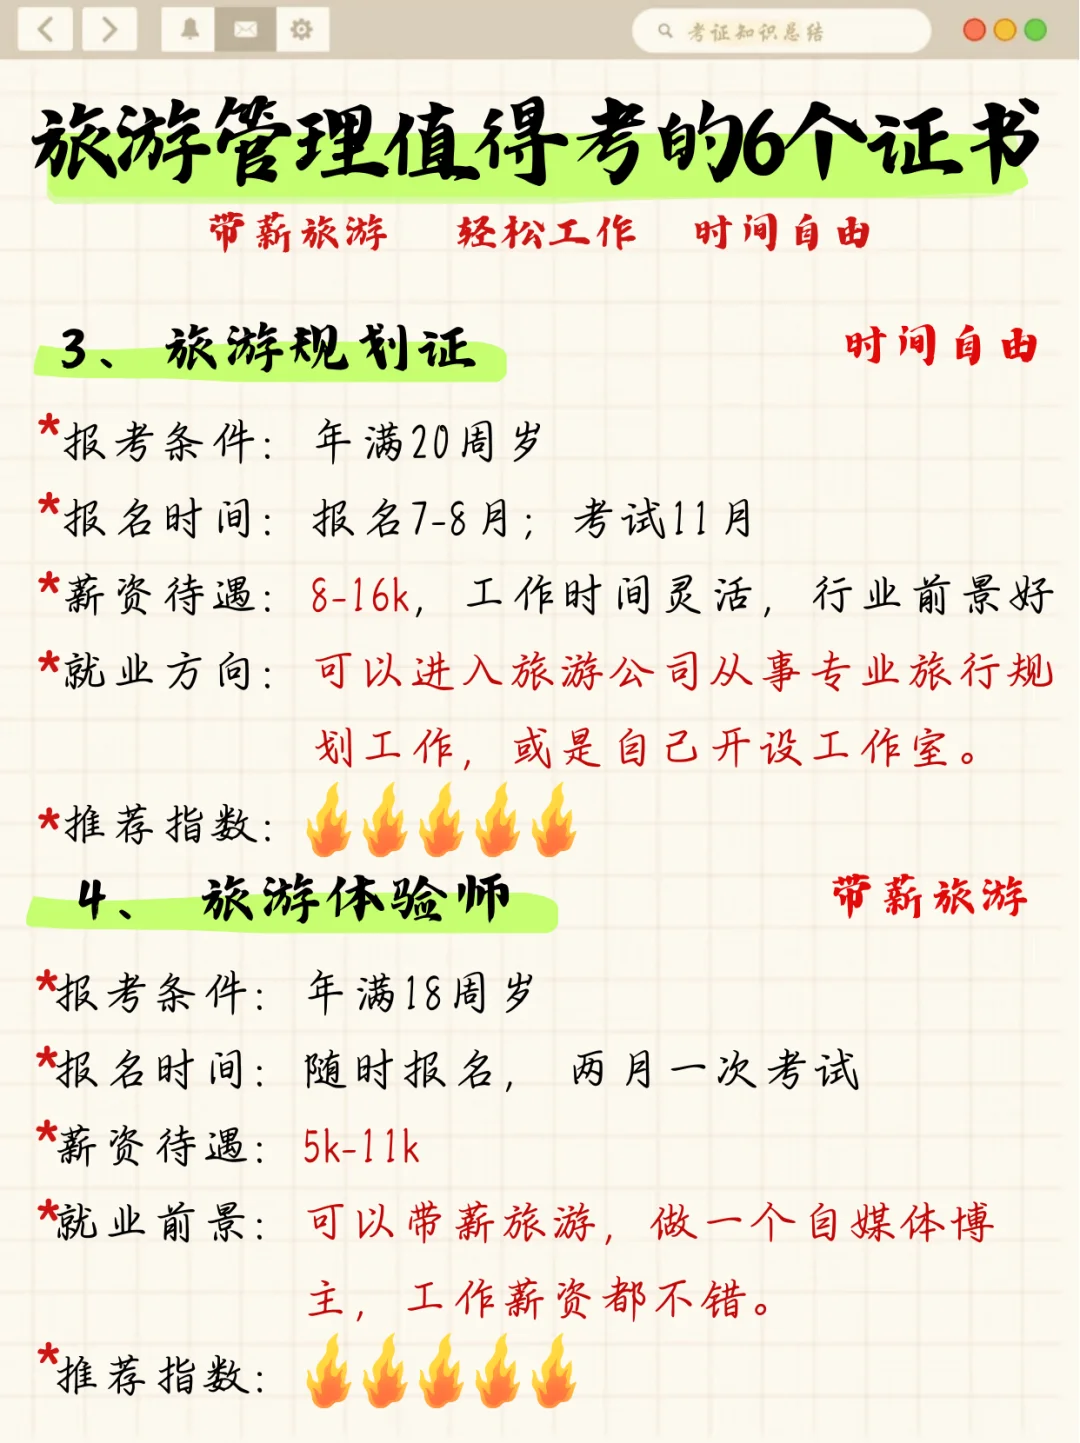 考证知识总结
旅游管理值得考的6个证书
带薪旅游 轻松工作 时间自由
3、 旅游规划证 时间自由
*报考条件: 年满20周岁
*报名时间: 报名7-8月; 考试11月
*薪资待遇: 8-16k, 工作时间灵活, 行业前景好
*就业方向: 可以进入旅游公司从事专业旅行规
划工作, 或是自己开设工作室。
*推荐指数: 🔥🔥🔥🔥🔥
4、 旅游体验师 带薪旅游
*报考条件: 年满18周岁
*报名时间: 随时报名, 两月一次考试
*薪资待遇: 5k-11k
*就业前景: 可以带薪旅游, 做一个自媒体博
主, 工作薪资都不错。
*推荐指数: 🔥🔥🔥🔥🔥